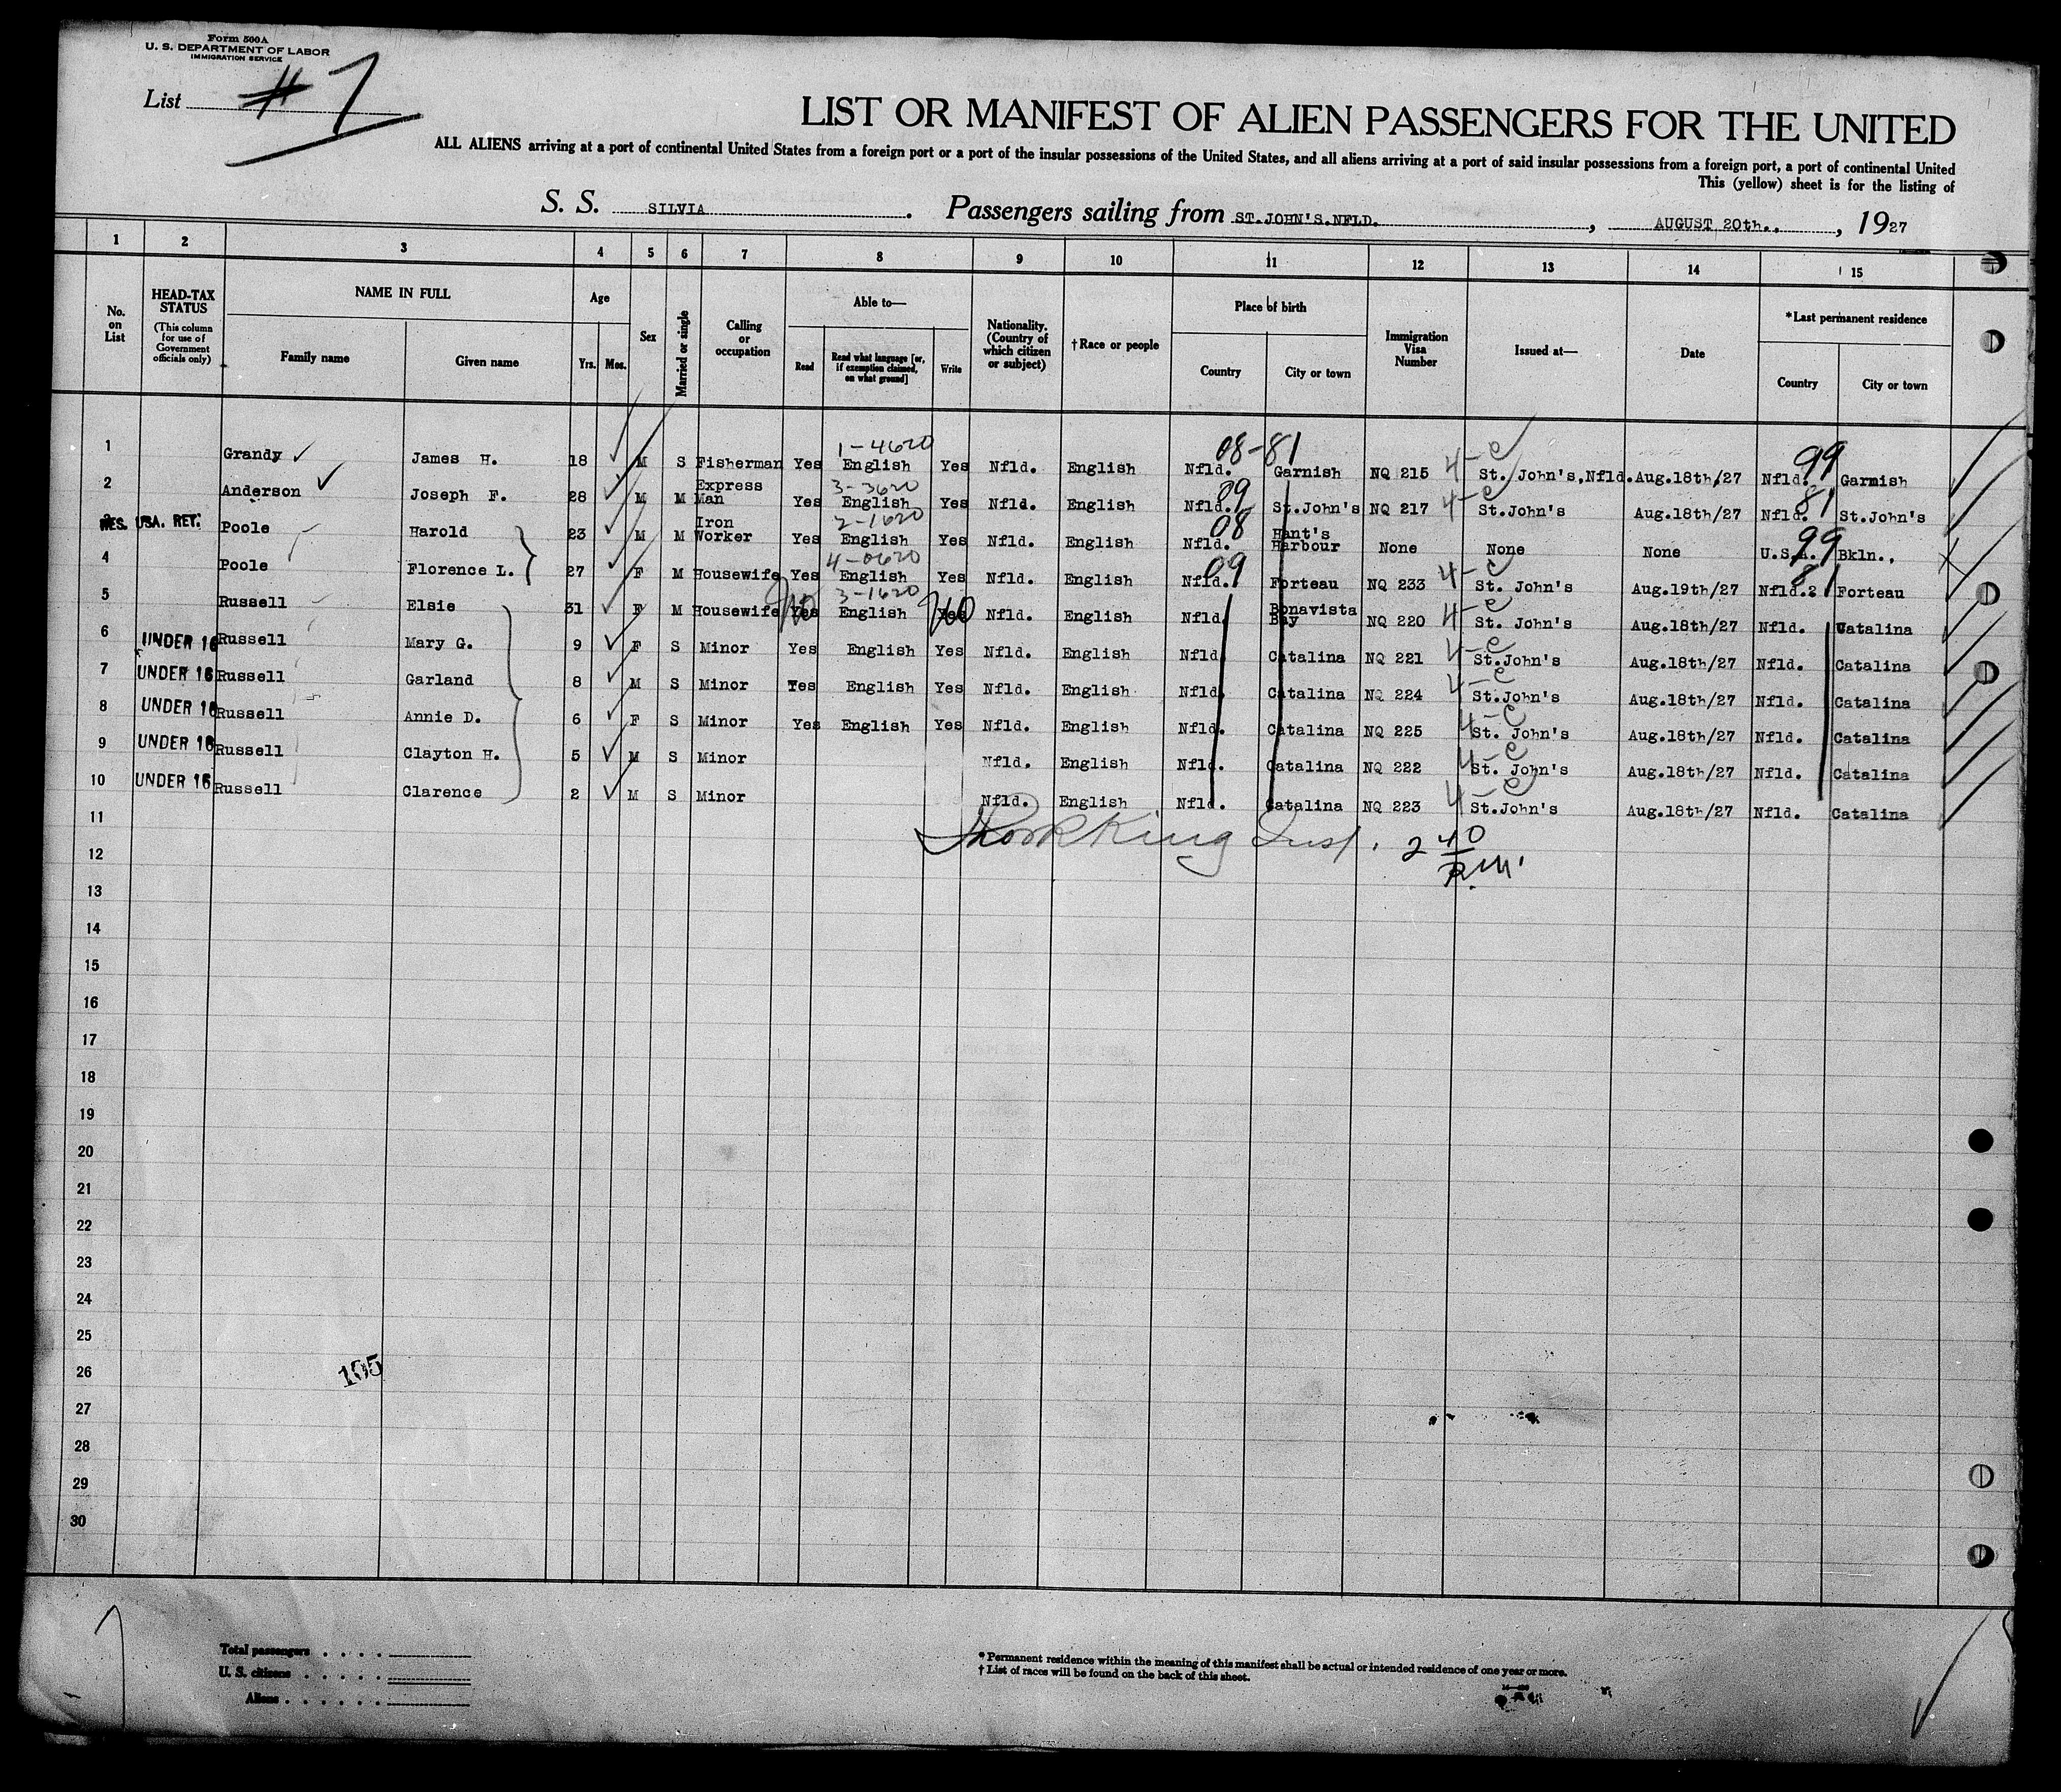 Form 500A
U. S. DEPARTMENT OF LABOR
IMMIGRATION SERVICE
List # 7
LIST OR MANIFEST OF ALIEN PASSENGERS FOR THE UNITED
ALL ALIENS arriving at a port of continental United States from a foreign port or a port of the insular possessions of the United States, and all aliens arriving at a port of said insular possessions from a foreign port, a port of continental United
This (yellow) sheet is for the listing of
S. S. SILVIA. Passengers sailing from ST.JOHN'S.NFLD., AUGUST 20th., 1927
1 2 3 4 5 6 7 8 9 10 11 12 13 14 15
No. on List
HEAD-TAX STATUS (This column for use of Government officials only)
NAME IN FULL
Family name Given name
Age Yrs. Mos.
Sex
Married or single
Calling or occupation
Able to—
Read Read what language [or, if exemption claimed, on what ground] Write
Nationality. (Country of which citizen or subject)
†Race or people
Place of birth
Country City or town
Immigration Visa Number
Issued at—
Date
*Last permanent residence
Country City or town
1-4620 08-81 4-C 99
1 Grandy James H. 18 M S Fisherman Yes English Yes Nfld. English Nfld. Garnish NQ 215 St. John's,Nfld. Aug.18th/27 Nfld. Garnish
3-3620 09 4-C 81
2 Anderson Joseph F. 28 M M Express Man Yes English Yes Nfld. English Nfld. St.John's NQ 217 St.John's Aug.18th/27 Nfld. St.John's
2-1620 08 99
3 RES. USA. RET. Poole Harold 23 M M Iron Worker Yes English Yes Nfld. English Nfld. Hant's Harbour None None None U.S.A. Bkln.,
4-0620 09 4-C 81
4 Poole Florence L. 27 F M Housewife Yes English Yes Nfld. English Nfld. Forteau NQ 233 St. John's Aug.19th/27 Nfld.2 Forteau
3-1620 4-C
5 Russell Elsie 31 F M Housewife Yes no English Yes no Nfld. English Nfld. Bonavista Bay NQ 220 St. John's Aug.18th/27 Nfld. Catalina
4-C
6 UNDER 16 Russell Mary G. 9 F S Minor Yes English Yes Nfld. English Nfld. Catalina NQ 221 St.John's Aug.18th/27 Nfld. Catalina
4-C
7 UNDER 16 Russell Garland 8 M S Minor Yes English Yes Nfld. English Nfld. Catalina NQ 224 St.John's Aug.18th/27 Nfld. Catalina
4-C
8 UNDER 16 Russell Annie D. 6 F S Minor Yes English Yes Nfld. English Nfld. Catalina NQ 225 St. John's Aug.18th/27 Nfld. Catalina
4-C
9 UNDER 16 Russell Clayton H. 5 M S Minor Nfld. English Nfld. Catalina NQ 222 St. John's Aug.18th/27 Nfld. Catalina
4-C
10 UNDER 16 Russell Clarence 2 M S Minor Nfld. English Nfld. Catalina NQ 223 St.John's Aug.18th/27 Nfld. Catalina
11
King Insp. 2 40 P.M.
12
13
14
15
16
17
18
19
20
21
22
23
24
25
26
105
27
28
29
30
Total passengers . . . .
U. S. citizens . . . . .
Aliens . . . . . .
* Permanent residence within the meaning of this manifest shall be actual or intended residence of one year or more.
† List of races will be found on the back of this sheet.